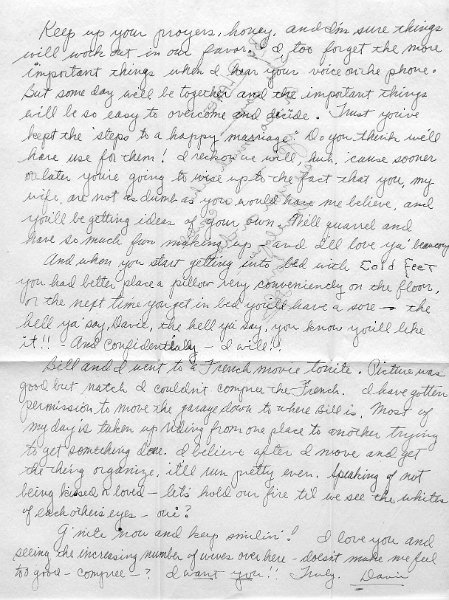 Keep up your prayers, honey, and I'm sure things
will work out in our favor. I, too forget the more
important things when I hear your voice on the phone.
But some day we'll be together and the important things
will be so easy to overcome and decide. Trust you've
kept the "steps to a happy marriage." Do you think we'll
have use for them! I reckon we will, huh, 'cause sooner
or later you're going to wise up to the fact that you, my
wife, are not as dumb as you would have me believe, and
you'll be getting ideas of your own. We'll quarrel and
have so much fun making up - and I'll love ya'
And when you start getting into bed with Cold Feet
you had better place a pillow very conveniently on the floor,
or the next time you get in bed you'll have a sore - the
hell ya' say, Davie, the hell ya' say, you know you'll like
it!! And confidentially - I will!!
Bill and I went to a French movie tonite. Picture was
good but natch I couldn't compree the French. I have gotten
permission to move the garage down to where Bill is. Most of
my day is taken up riding from one place to another trying
to get something done. I believe after I move and get
the thing organize, it'll run pretty even. Speaking of not
being kissed n' loved - let's hold our fire til' we see the whites
of each other's eyes - oui?
G'nite now and keep smilin'! I love you and
seeing the increasing number of wives over here - doesn't make me feel
too good - compree - ? I want you!! Truly. Davie